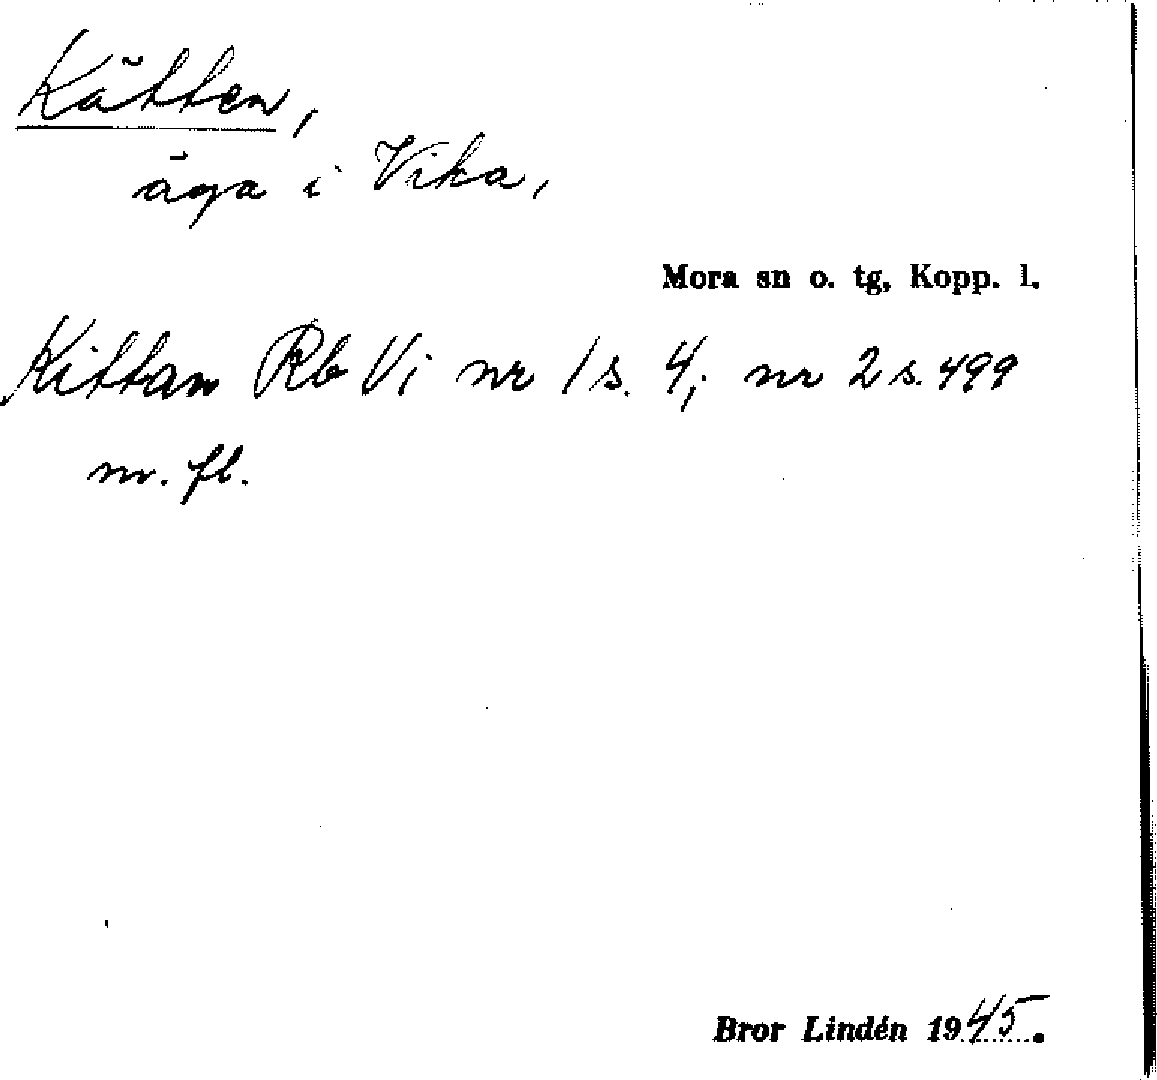 Kätten,
äga i Vika,
Mora sn o. tg, Kopp. l.
Kittan Rb Vi nr 1 s. 4; nr 2 s. 499
m. fl.
Bror Lindén 1945.